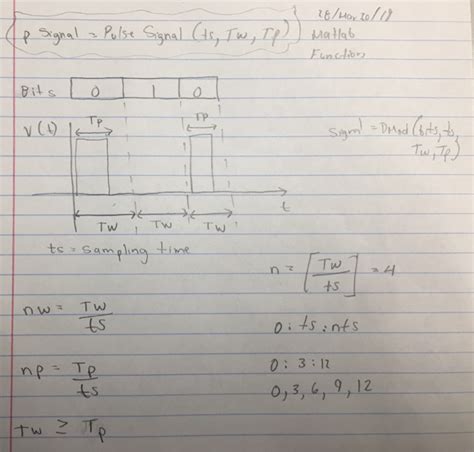 28/Mar 20/19
p Signal = Pulse Signal (ts, Tw, Tp)
Matlab
Function
Bits 0 1 0
V(t) Tp Tp
Signal = DMod (bits, ts,
Tw, Tp)
t
Tw Tw Tw
ts = sampling time
n = [Tw/ts] = 4
nw = Tw/ts
0 : ts : nts
np = Tp/ts
0 : 3 : 12
0, 3, 6, 9, 12
Tw ≥ Tp